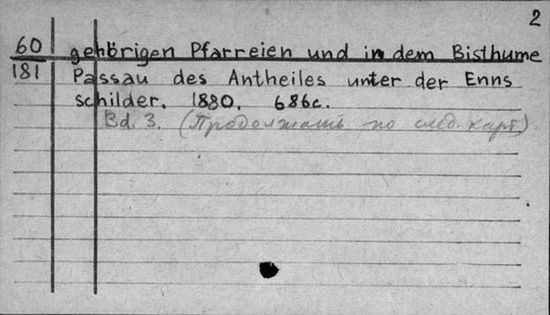 2
60
181
gehörigen Pfarreien und in dem Bisthume
Passau des Antheiles unter der Enns
schilder. 1880. 686c.
Bd. 3. (Продолжать по след. карт)